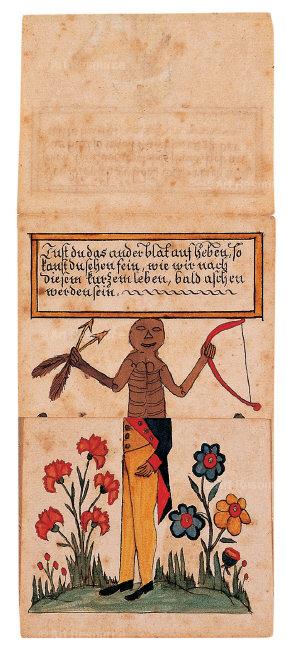 Tust du das ander blat auf heben, so
kanst du sehen fein, wie wir nach
diesem kurzem leben, bald aschen
werden sein.